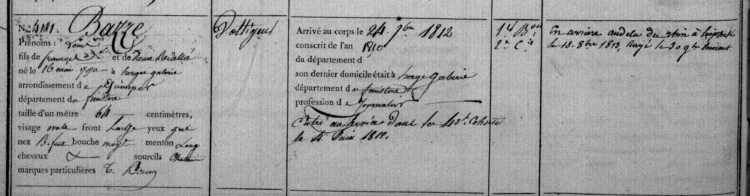 No. 4181. Bazze
Prénoms : Louis
fils de françois et de Reine
né le 16 mai 1790 à
arrondissement de quimper
département du finistère
taille d'un mètre 64 centimètres,
visage ovale front Large yeux gris
nez Bouche moy.t menton Long
cheveux sourcils Chatain
marques particulières
Voltigeur
Arrivé au corps le 24 1812
conscrit de l'an 1810
du département d
son dernier domicile était à gaberie
département du finistère
profession de journalier
Entré au service dans les 42e Cohorte
le 4 Juin 1812.
1er B.on
2e C.ie
En arrière audela du rhin à Leipsick
le 18. 8bre 1813, Rayé le 30 9bre suivant